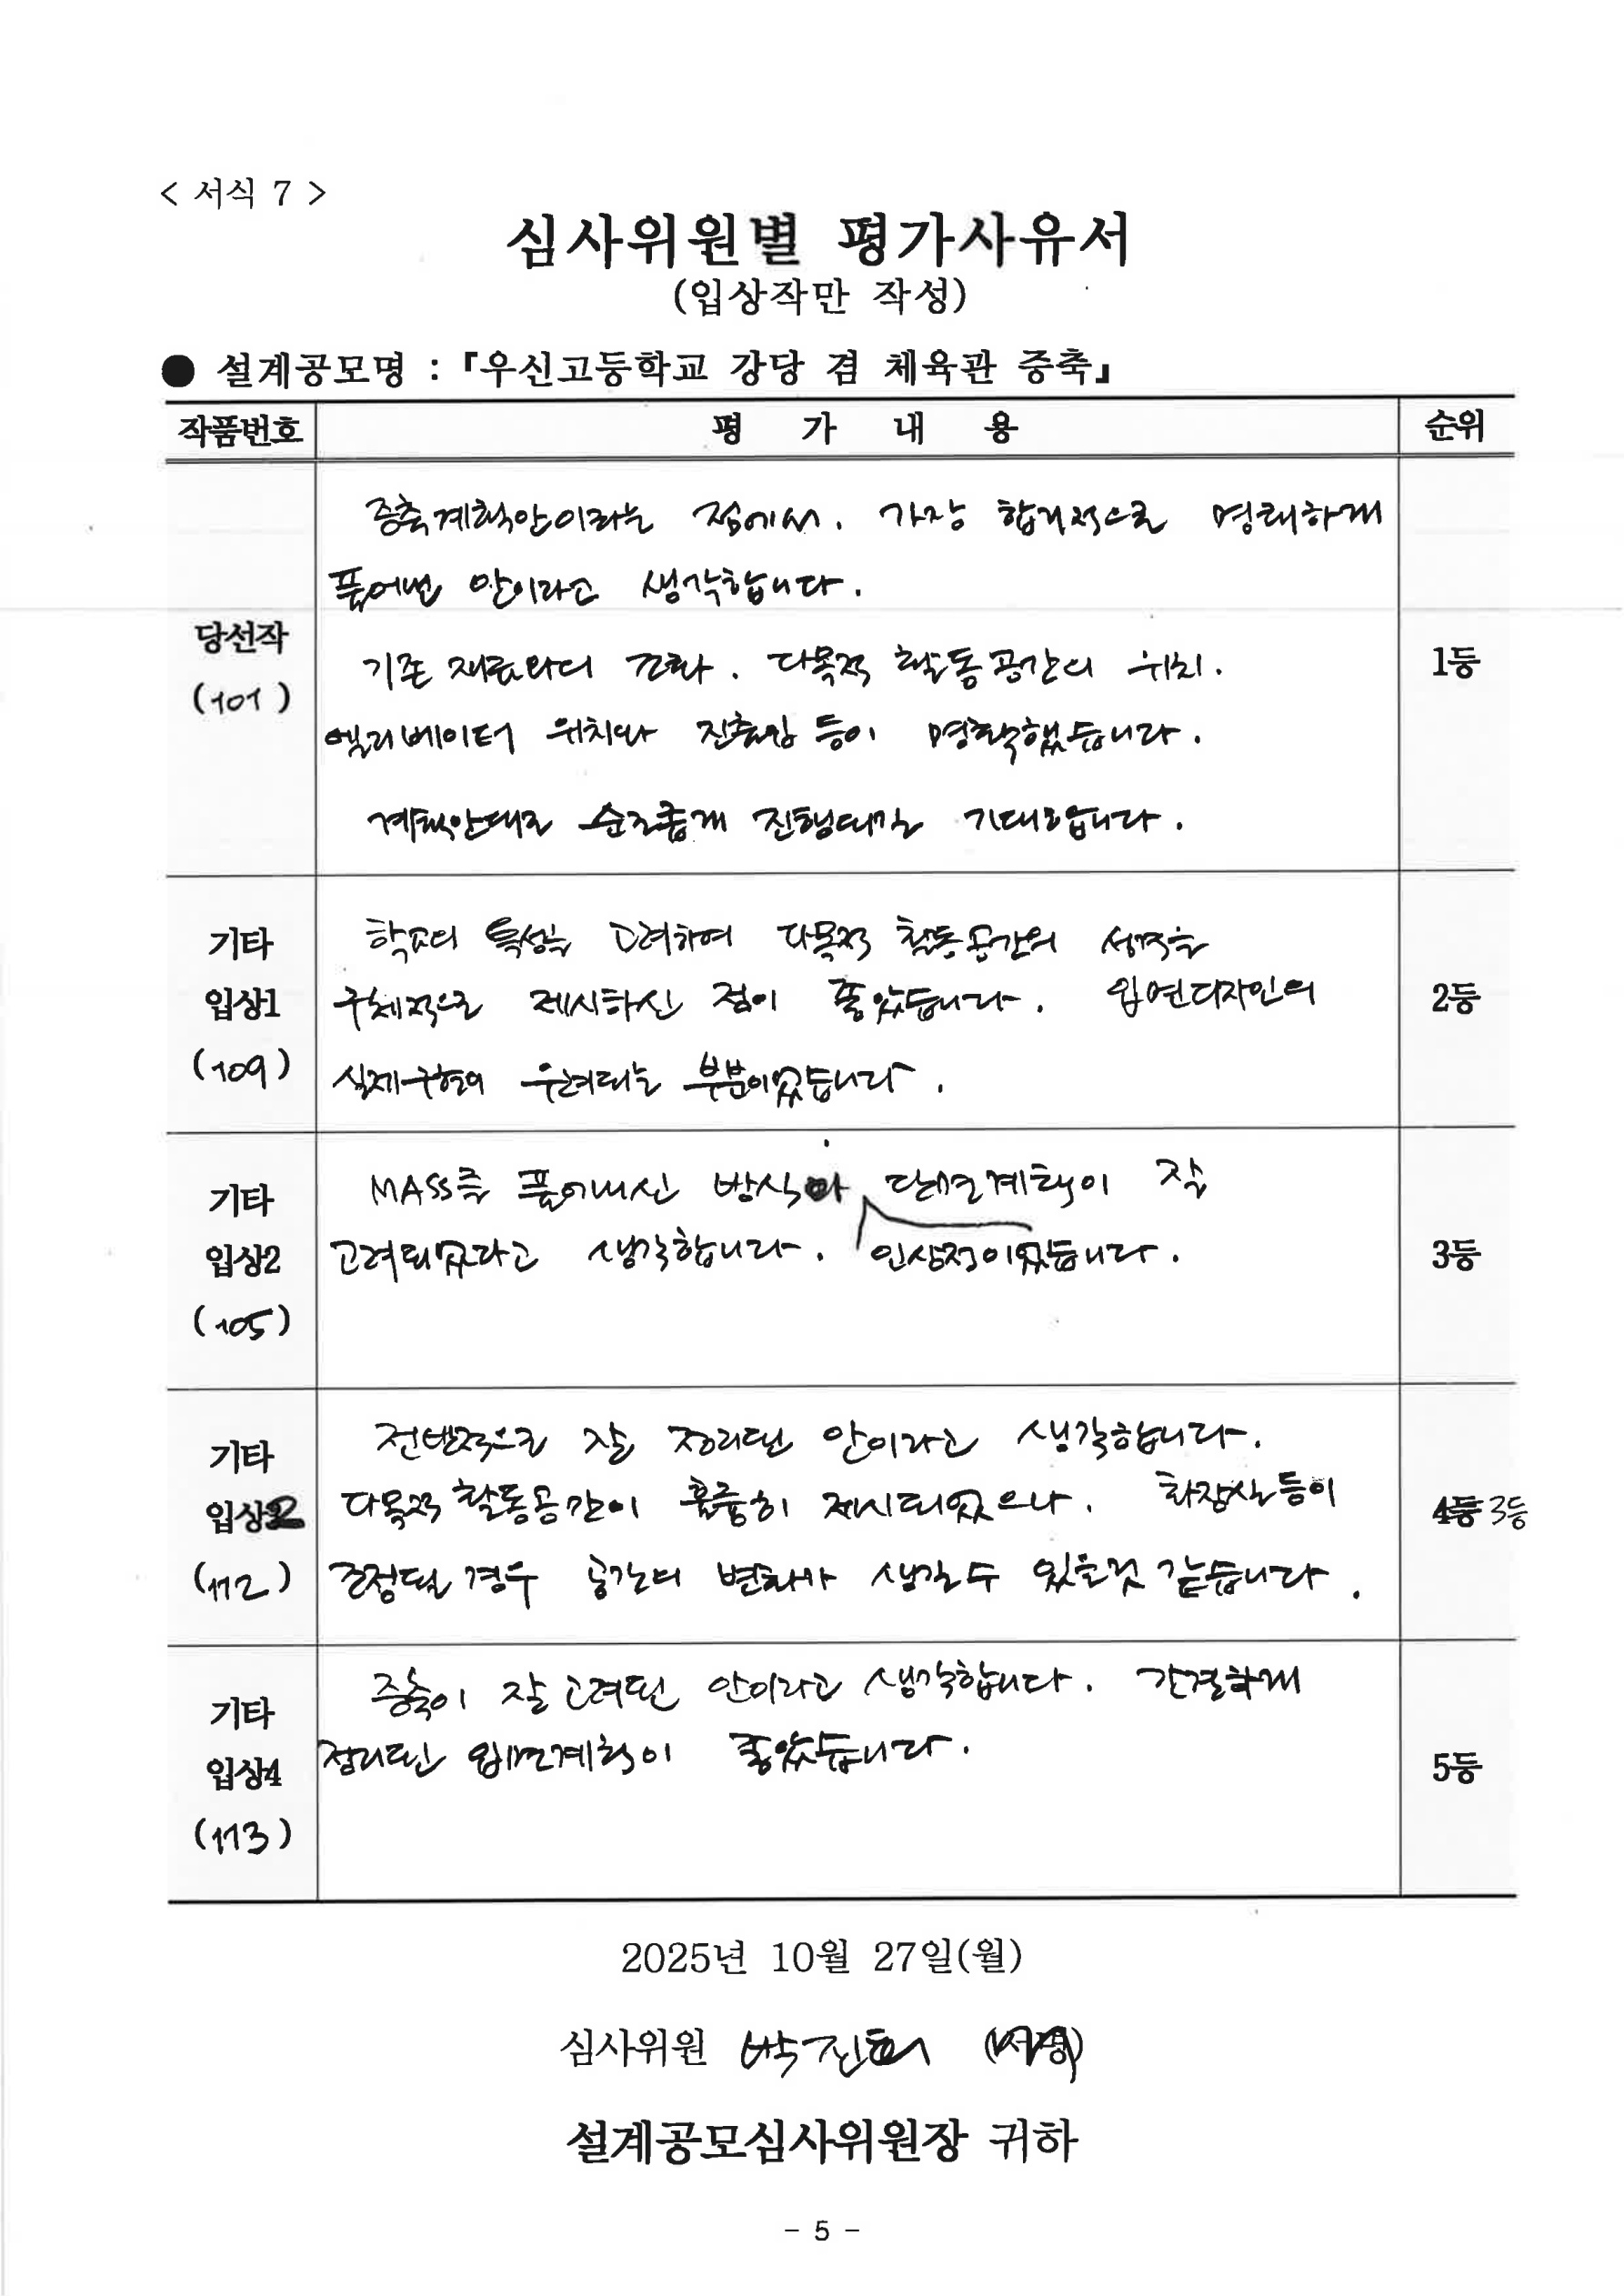 < 서식 7 >
심사위원별 평가사유서
(입상작만 작성)
● 설계공모명 : 『우신고등학교 강당 겸 체육관 증축』
작품번호 평 가 내 용 순위
증축계획안이라는 점에서. 가장 합리적으로 명쾌하게
풀어낸 안이라고 생각합니다.
당선작
(101)
기존 재료와의 조화. 다목적 활동공간의 위치.
1등
엘리베이터 위치와 진출입 등이 명확했습니다.
계획안대로 순조롭게 진행되길 기대합니다.
기타
입상1
(109)
학교의 특성을 고려하여 다목적 활동공간의 성격을
구체적으로 제시하신 점이 좋았습니다. 입면디자인의
실제구현이 우려되는 부분이었습니다.
2등
기타
입상2
(105)
MASS를 풀어내신 방식과 단면계획이 잘
고려되었다고 생각합니다. 인상적이었습니다.
3등
기타
입상2
(112)
전반적으로 잘 정리된 안이라고 생각합니다.
다목적 활동공간이 훌륭히 제시되었으나. 화장실등이
조정될 경우 공간의 변화가 생길수 있을것 같습니다.
4등 3등
기타
입상4
(113)
증축이 잘 고려된 안이라고 생각합니다. 간결하게
정리된 입면계획이 좋았습니다.
5등
2025년 10월 27일(월)
심사위원 박진희 (서명)
설계공모심사위원장 귀하
- 5 -